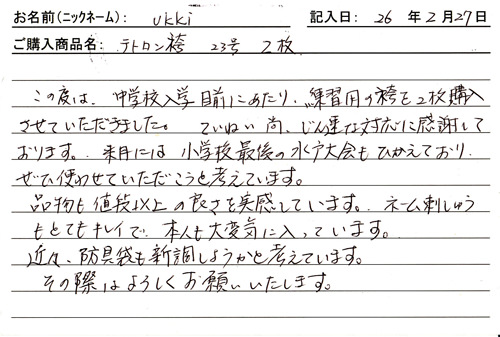 お名前(ニックネーム): ukki 記入日: 26 年 2 月 27 日
ご購入商品名: テトロン袴 23号 2枚
この度は、中学校入学目前にあたり、練習用の袴を2枚購入
させていただきました。 ていねい 尚、じん速な対応に感謝して
おります。来月には 小学校最後の水戸大会もひかえており、
ぜひ使わせていただこうと考えています。
品物も値段以上の良さを実感しています。ネーム刺しゅう
もとてもキレイで、本人も大変気に入っています。
近々、防具袋も新調しようかと考えています。
その際はよろしくお願いいたします。